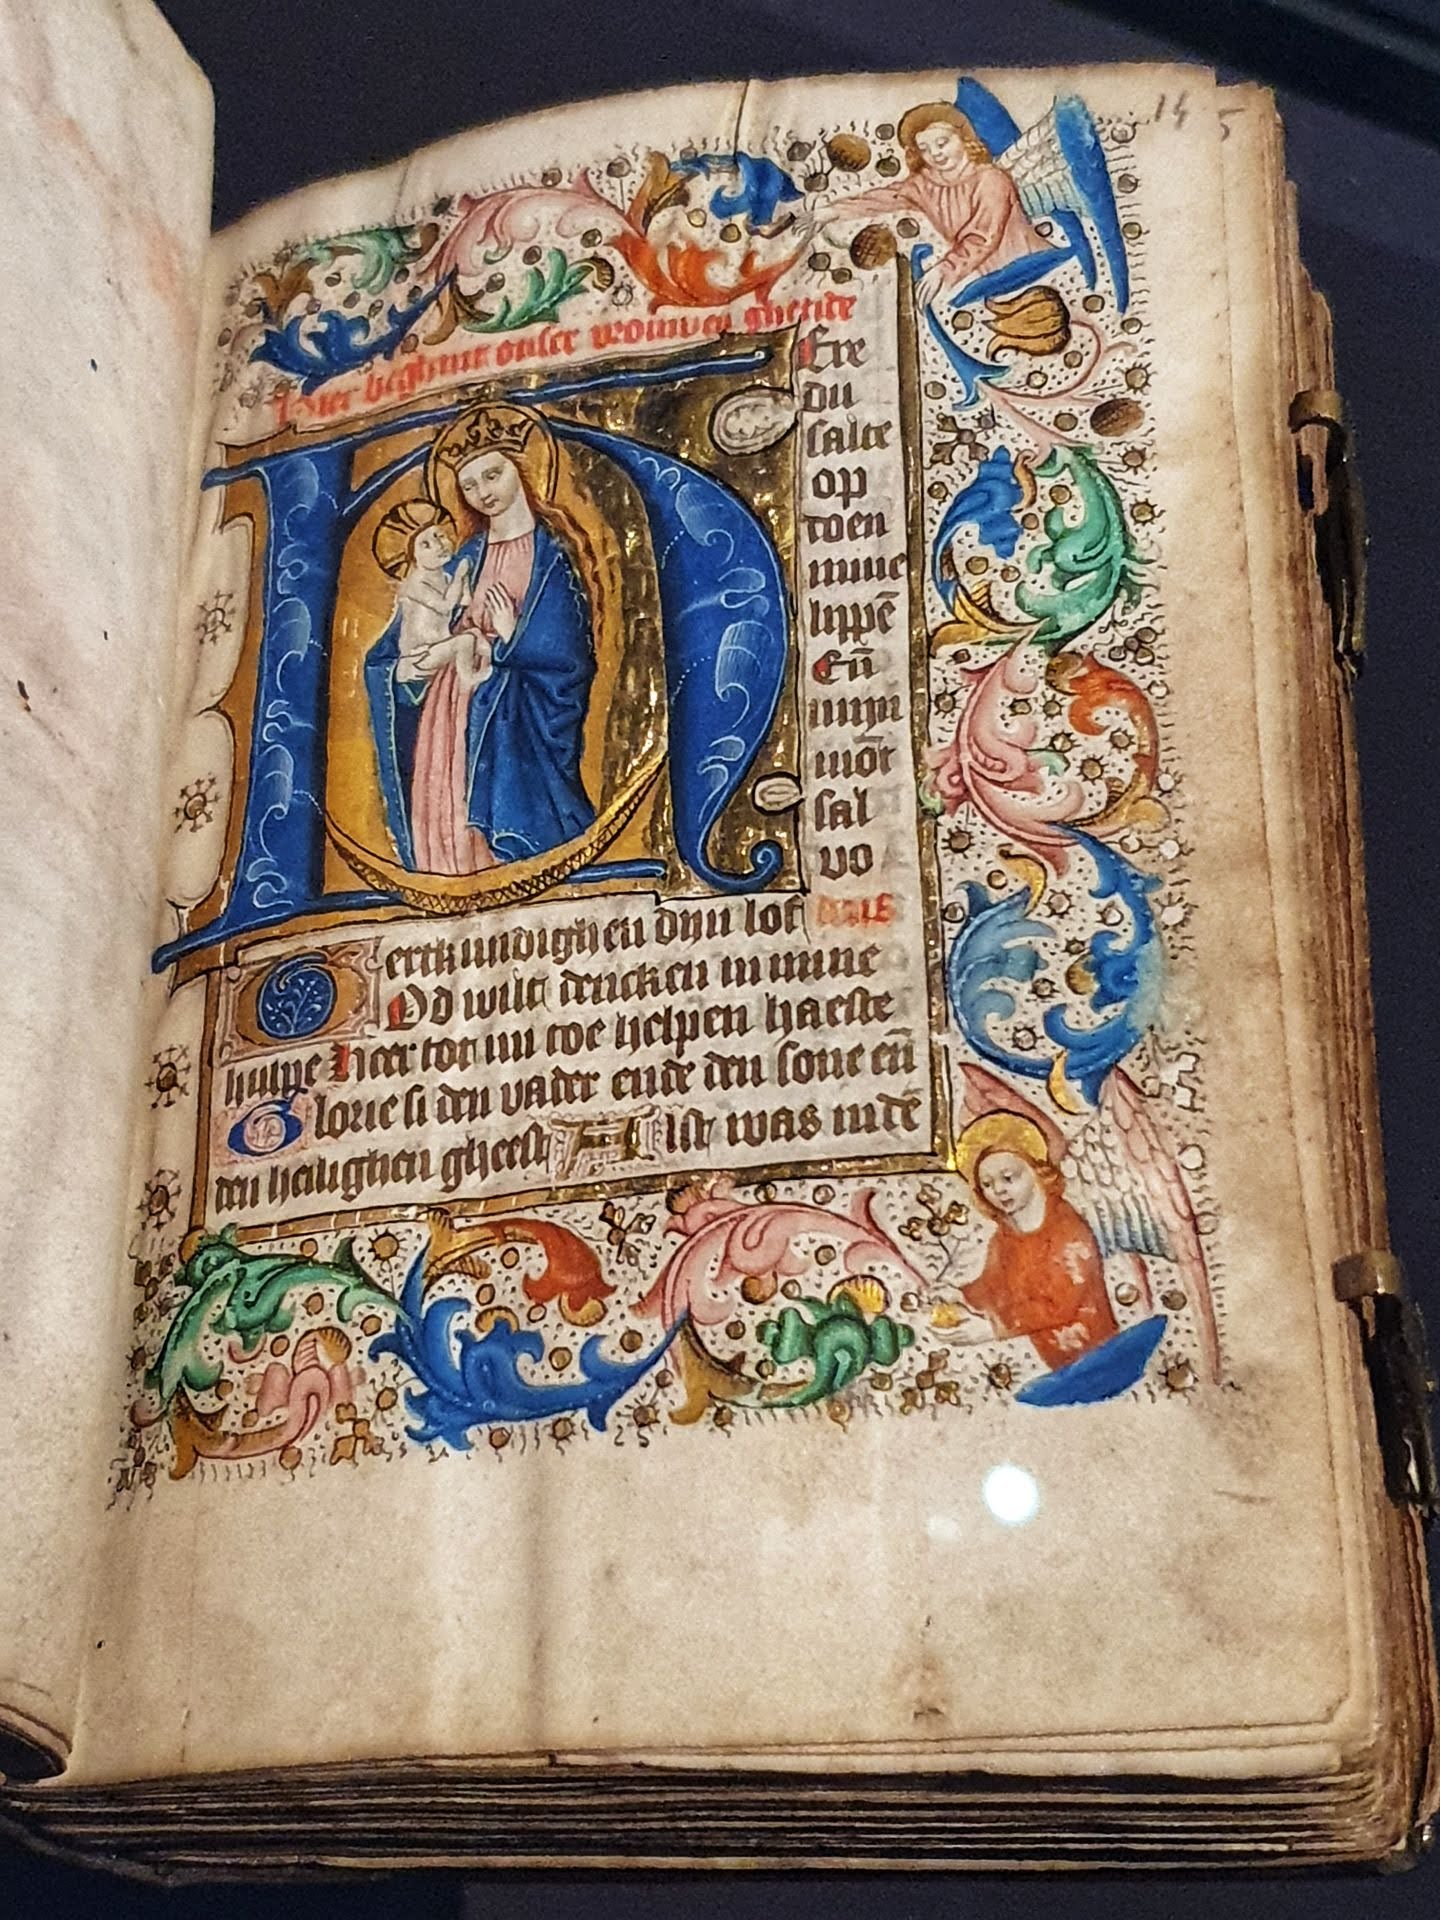 15
Hier beghint onser vrouwen ghetide
H
Ere
du
salte
op
doen
mine
lippē
Eñ
mijn
mōt
sal
vo
vertkundighen dijn lof
God wilt dencken in mine
hulpe Heer tot mi toe helpen haeste
Glorie si den vader ende den sone eñ
den heilighen gheest Alst was indē